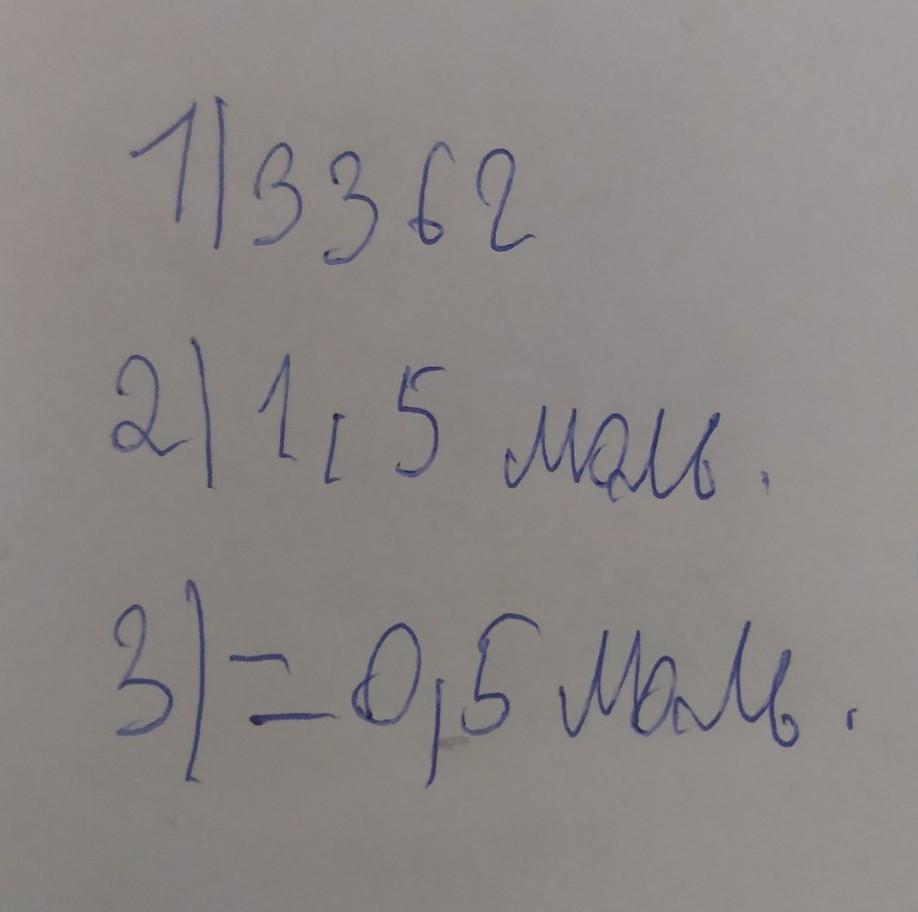 1) 336г
2) 1,5 моль.
3) = 0,5 моль.